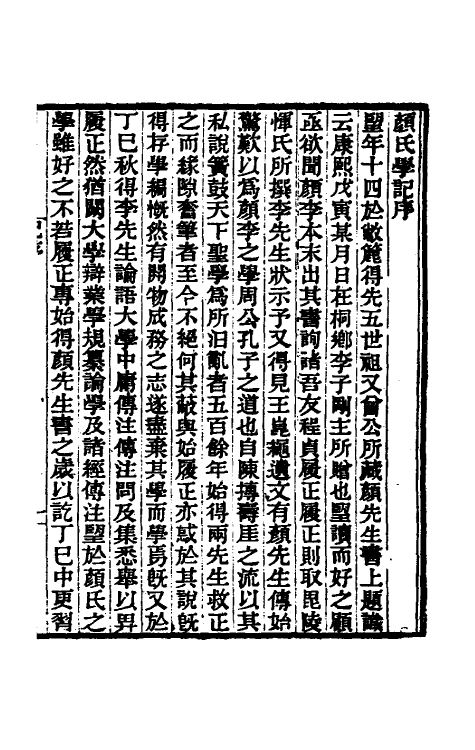 顏氏學記序
朢年十四於敝簏得先五世祖又曾公所藏顏先生書上題識
云康熙戊寅某月日在桐鄉李子剛主所贈也朢讀而好之顧
亟欲聞顏李本末出其書詢諸吾友程貞履正履正則取毘陵
惲氏所撰李先生狀示予又得見王崑繩遺文有顏先生傳始
驚歎以爲顏李之學周公孔子之道也自陳摶壽厓之流以其
私說簧鼓天下聖學爲所汩亂者五百餘年始得兩先生救正
之而緣隙奮筆者至今不絕何其蔽與始履正亦惑於其說旣
得存學編慨然有開物成務之志遂盡棄其學而學焉旣又於
丁巳秋得李先生論語大學中庸傳注傳注問及集悉舉以畀
履正然猶闕大學辯業學規纂論學及諸經傳注朢於顏氏之
學雖好之不若履正專始得顏先生書之歲以訖丁巳中更習